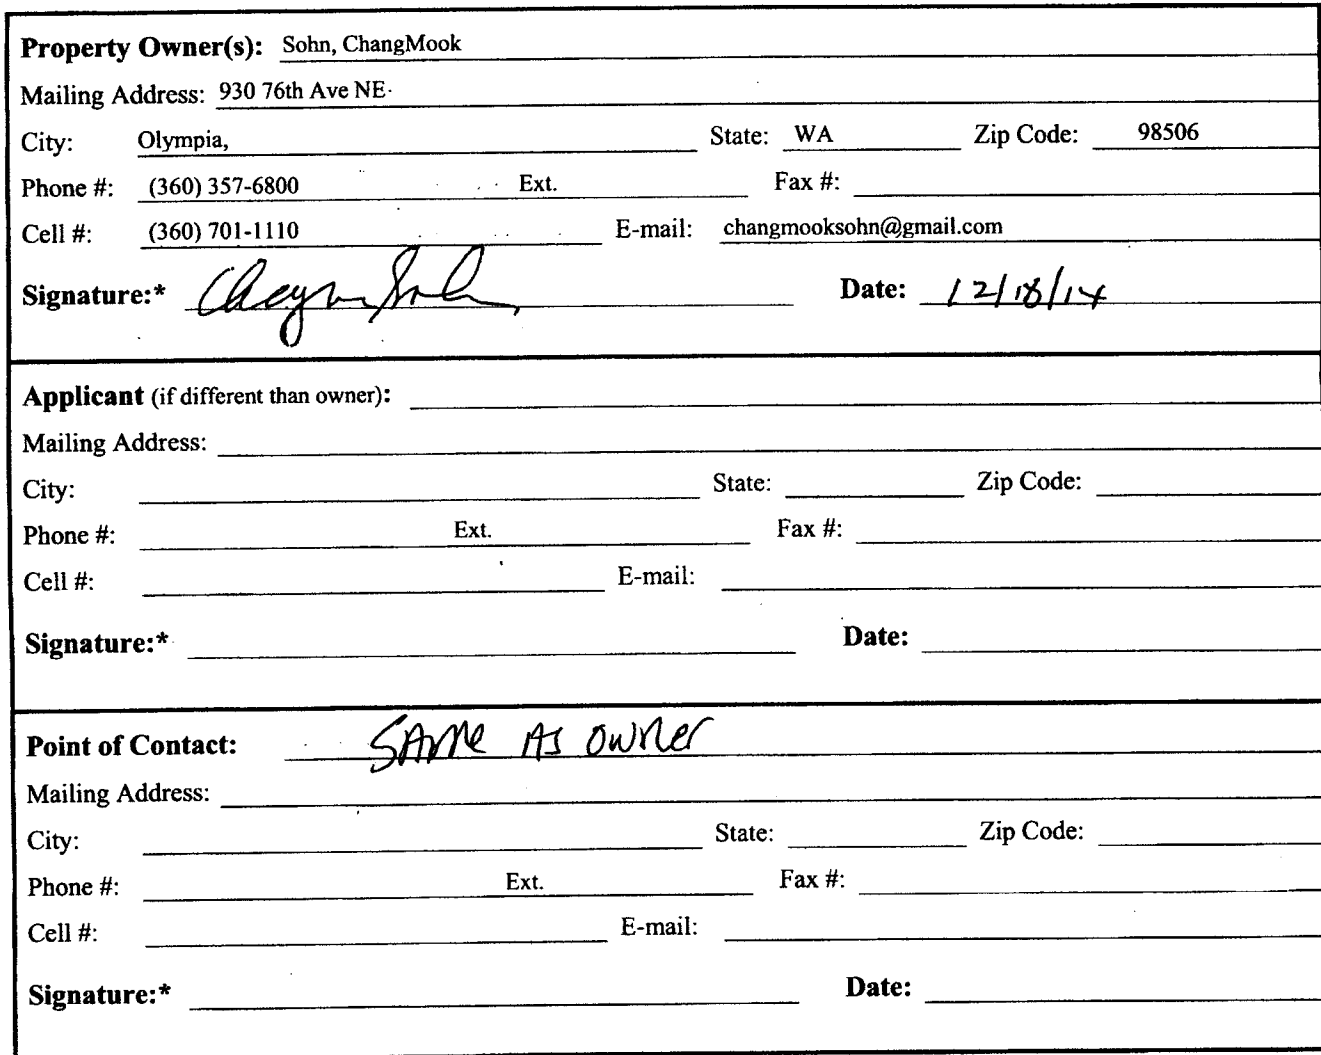 Property Owner(s): Sohn, ChangMook
Mailing Address: 930 76th Ave NE
City: Olympia, State: WA Zip Code: 98506
Phone #: (360) 357-6800 Ext. Fax #:
Cell #: (360) 701-1110 E-mail: changmooksohn@gmail.com
Signature:* Date: 12/18/14
Applicant (if different than owner):
Mailing Address:
City: State: Zip Code:
Phone #: Ext. Fax #:
Cell #: E-mail:
Signature:* Date:
Point of Contact: SAme AS owner
Mailing Address:
City: State: Zip Code:
Phone #: Ext. Fax #:
Cell #: E-mail:
Signature:* Date: